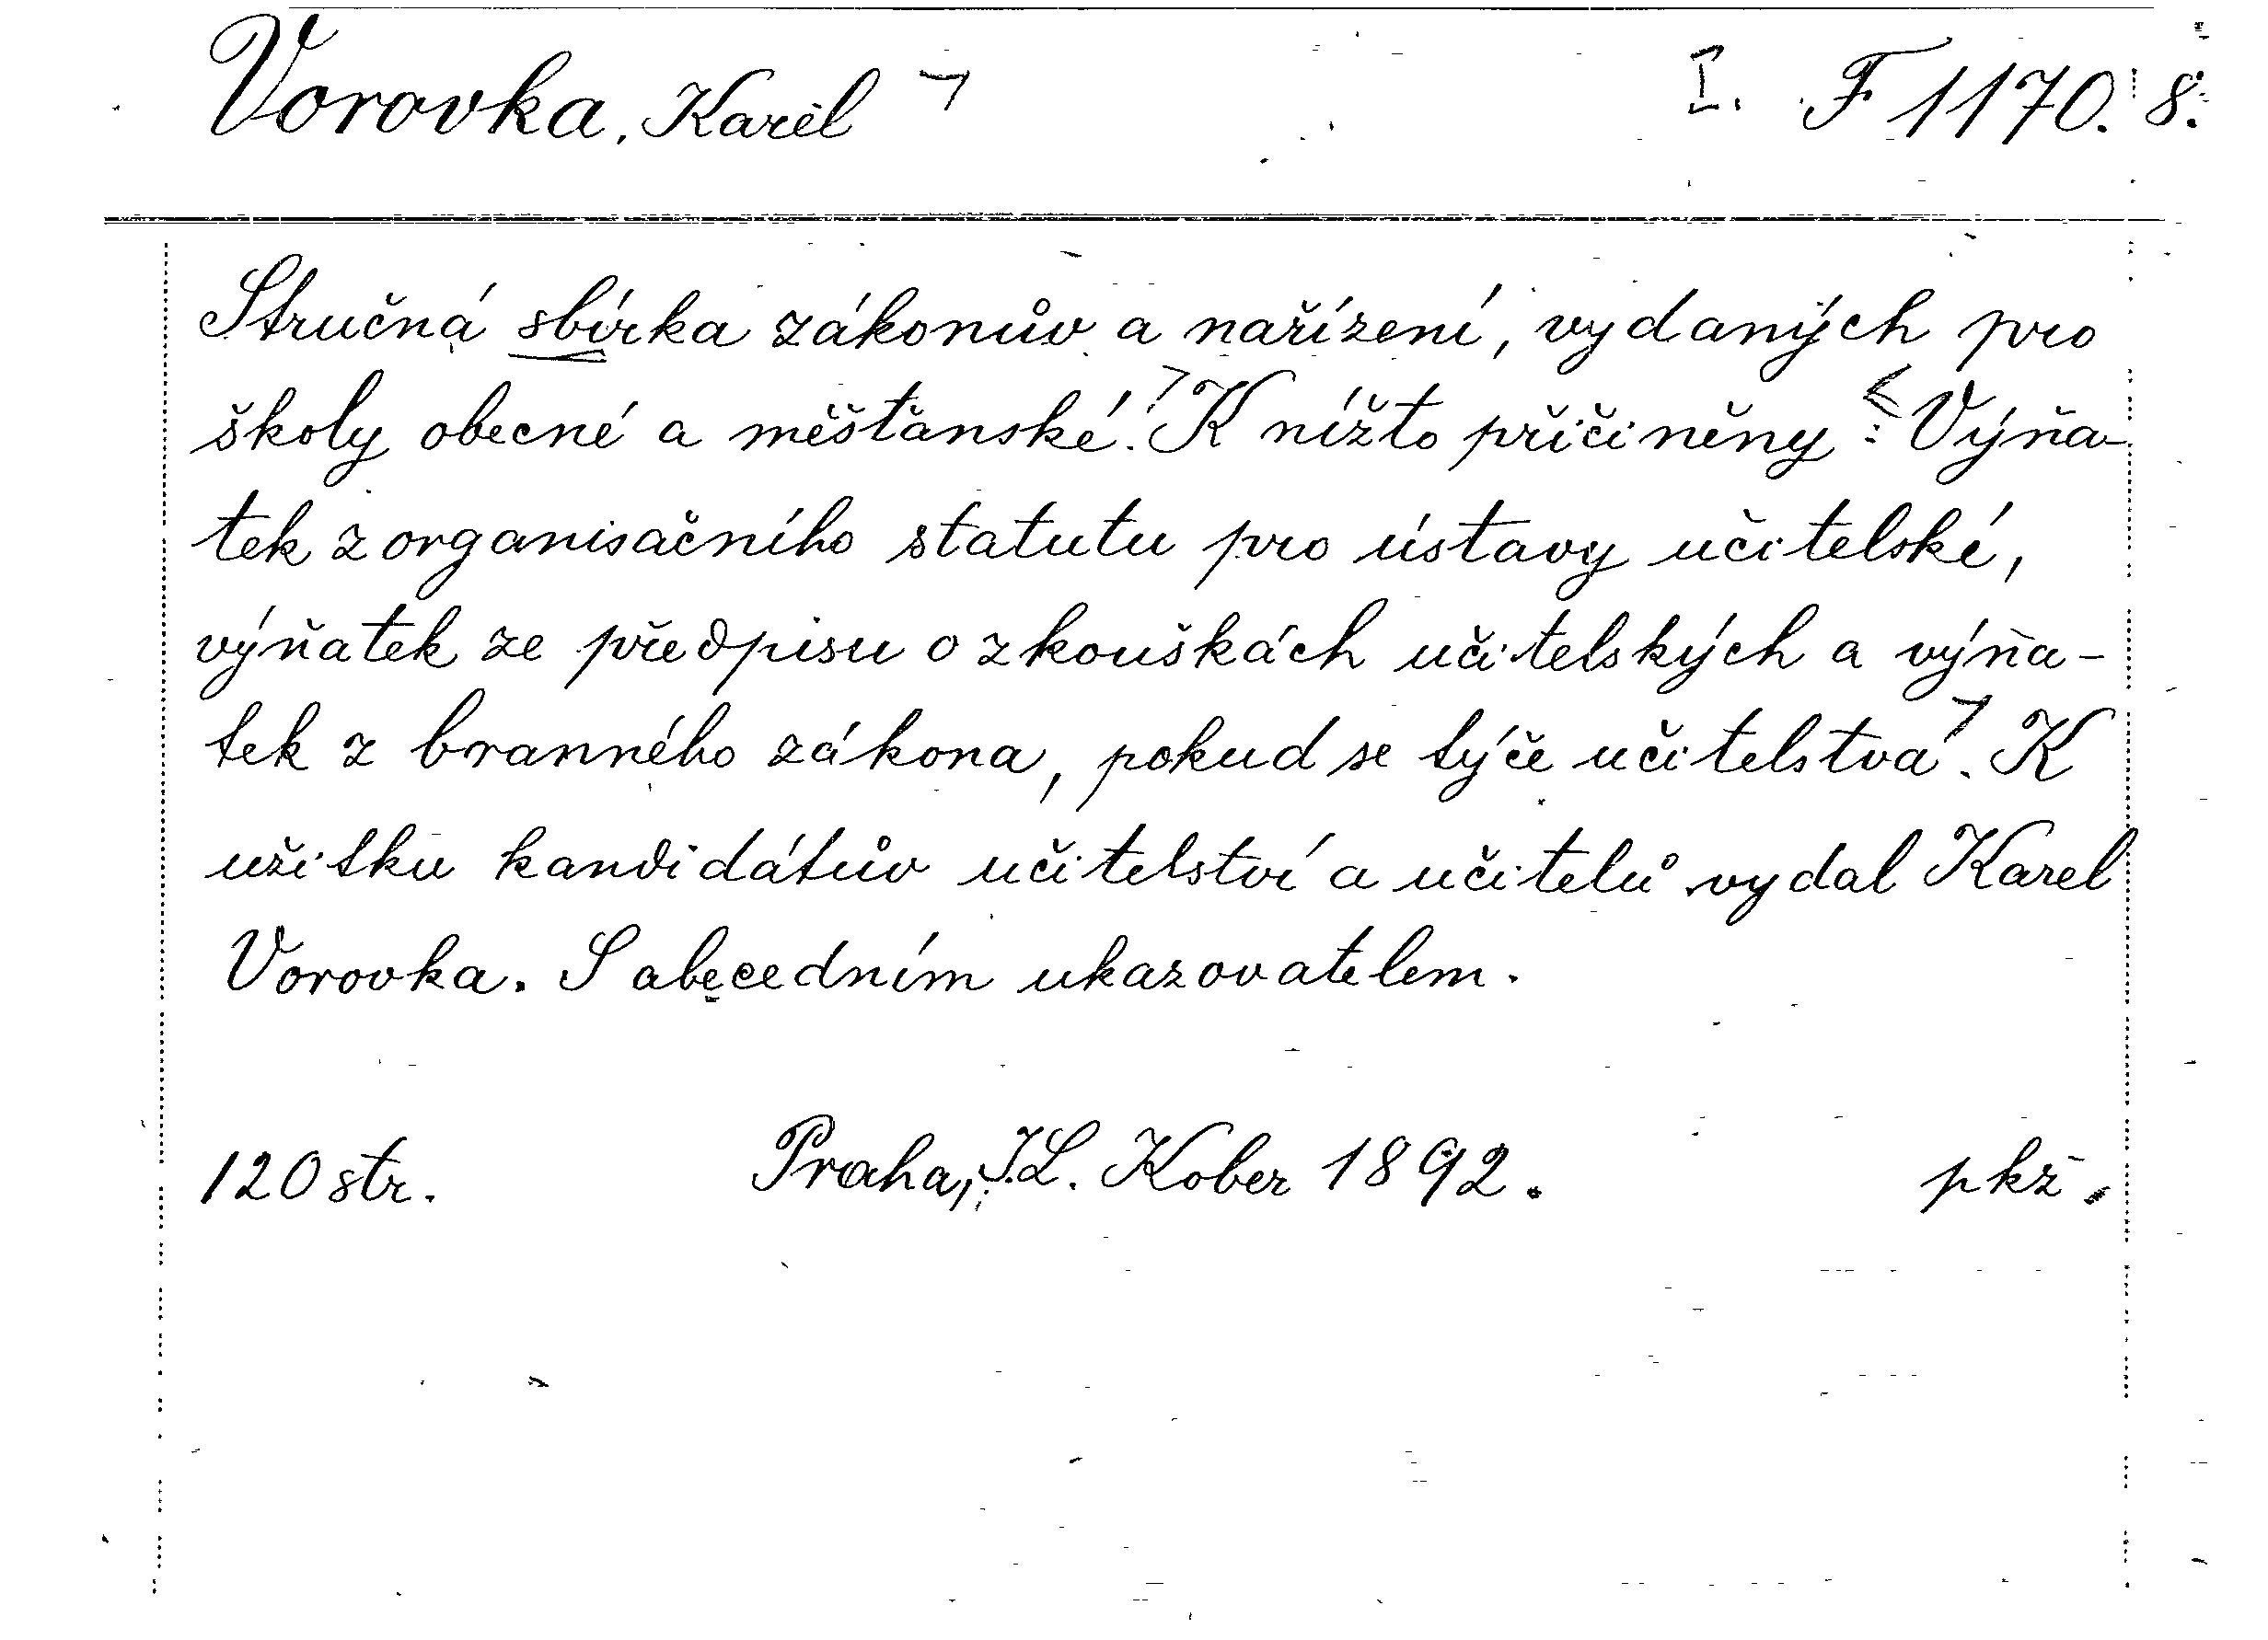 Vorovka, Karel I. F 1170. 8.
Stručná sbírka zákonův a nařízení, vydaných pro
školy obecné a měšťanské. K nížto přičiněny: Výňa-
tek z organisačního statutu pro ústavy učitelské,
výňatek ze předpisu o zkouškách učitelských a výňa-
tek z branného zákona, pokud se týče učitelstva. K
užitku kandidátův učitelství a učitelů vydal Karel
Vorovka. S abecedním ukazovatelem.
120 str. Praha, J.L. Kober 1892. pkž.